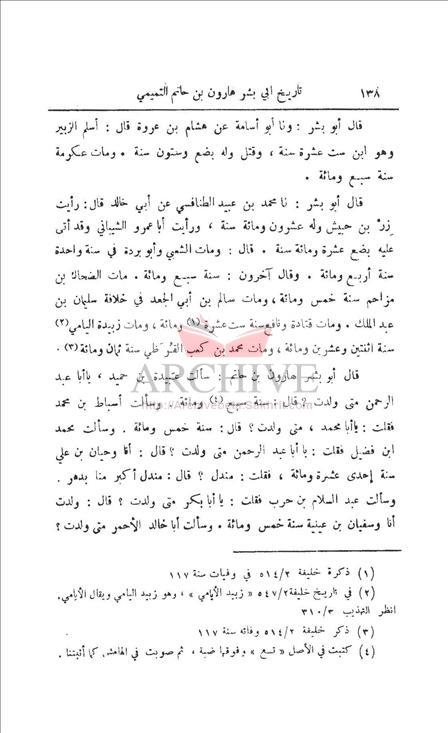 ١٣٨ تاريخ ابي بشر هارون بن حاتم التميمي
قال أبو بشر : ونا أبو أسامة عن هشام بن عروة قال : أسلم الزبير
وهو ابن ست عشرة سنة ، وقتل وله بضع وستون سنة . ومات عكرمة
سنة سبع ومائة .
قال أبو بشر : نا محمد بن عبيد الطنافسي عن أبي خالد قال : رأيت
زر بن حبيش وله عشرون ومائة سنة ، ورأيت أبا عمرو الشيباني وقد أتى
عليه بضع عشرة ومائة سنة . قال : ومات الشعبي وأبو بردة في سنة واحدة
سنة أربع ومائة . وقال آخرون : سنة سبع ومائة . مات الضحاك بن
مزاحم سنة خمس ومائة ، ومات سالم بن أبي الجعد في خلافة سليمان بن
عبد الملك . ومات قتادة ونافع سنة ست عشرة (١) ومائة ، ومات زبيدة اليامي (٢)
سنة اثنتين وعشرين ومائة ، ومات محمد بن كعب القرظي سنة ثمان ومائة (٣) .
قال أبو بشر هارون بن حاتم : سألت عبيدة بن حميد ، يا أبا عبد
الرحمن متى ولدت ؟ قال : سنة سبع (٤) ومائة . وسألت أسباط بن محمد
فقلت : يا أبا محمد ، متى ولدت ؟ قال : سنة خمس ومائة . وسألت محمد
ابن فضيل فقلت : يا أبا عبد الرحمن متى ولدت ؟ قال : أنا وحبان بن علي
سنة إحدى عشرة ومائة ، فقلت : مندل ؟ قال : مندل أكبر منا بدهر .
وسألت عبد السلام بن حرب فقلت : يا أبا بكر متى ولدت ؟ قال : ولدت
أنا وسفيان بن عيينة سنة خمس ومائة . وسألت أبا خالد الأحمر متى ولدت ؟
(١) ذكرة خليفة ٥١٤/٢ في وفيات سنة ١١٧
(٢) في تاريخ خليفة ٥٤٧/٢ « زبيد الأيامي » ، وهو زبيد اليامي ويقال الأيامي.
انظر التهذيب ٣١٠/٣
(٣) ذكر خليفة ٥١٤/٢ وفاته سنة ١١٧
(٤) كتبت في الأصل « تسع » وفوقها ضبة ، ثم صوبت في الهامش كما أثبتنا .
ARCHIVE